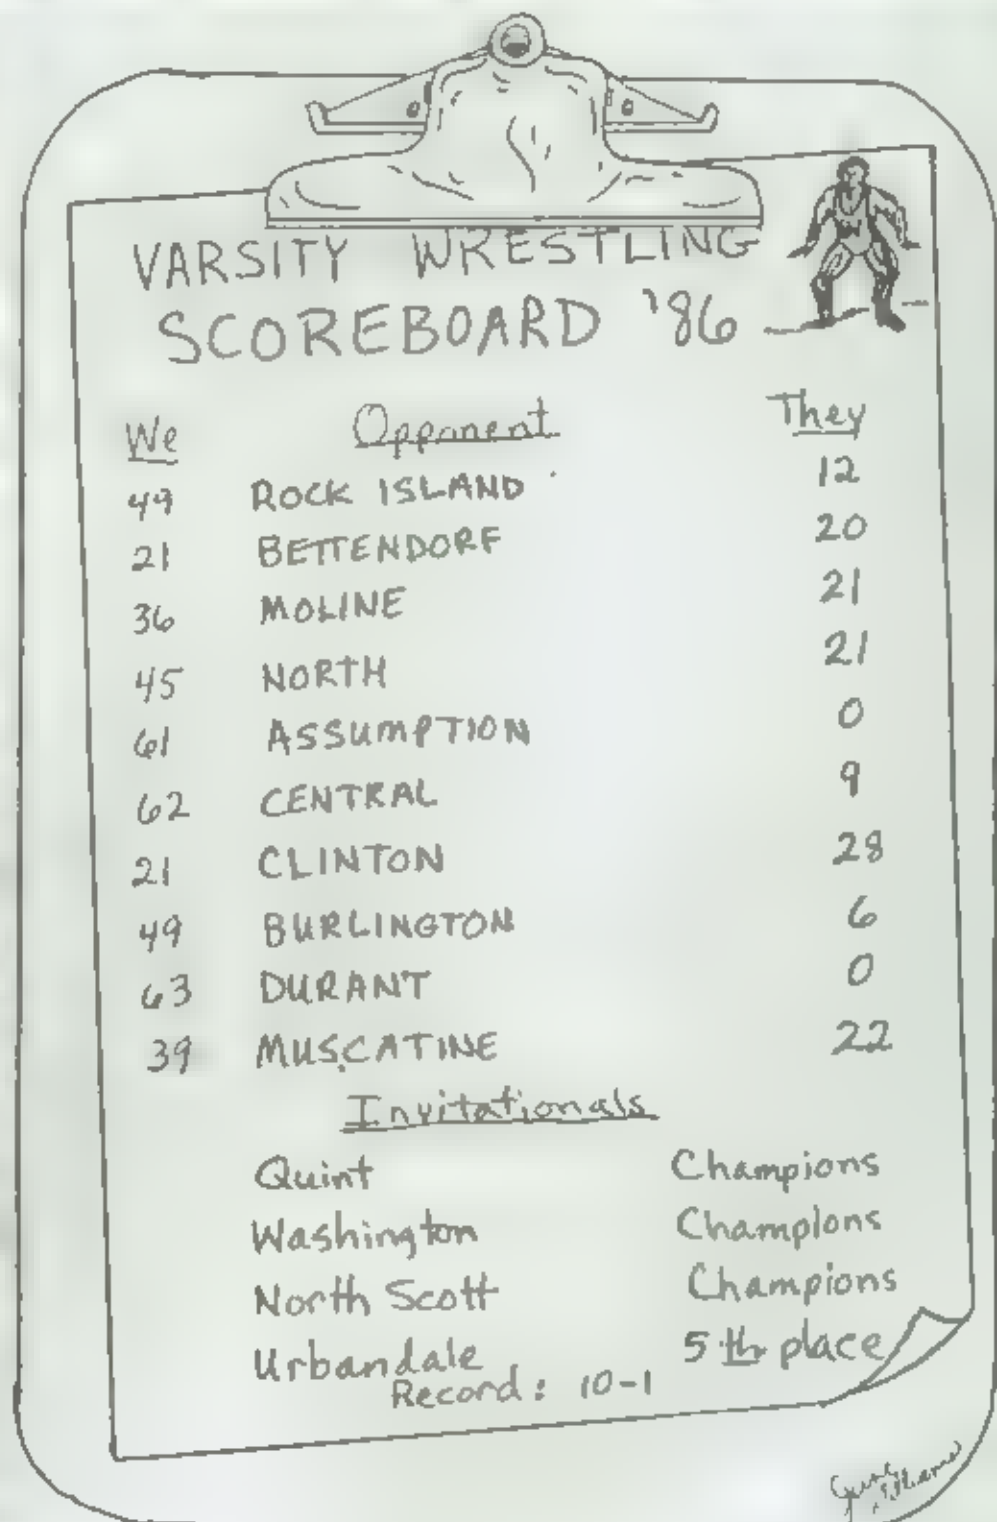 VARSITY WRESTLING
SCOREBOARD '86
We Opponent They
49 ROCK ISLAND 12
21 BETTENDORF 20
36 MOLINE 21
45 NORTH 21
61 ASSUMPTION 0
62 CENTRAL 9
21 CLINTON 28
49 BURLINGTON 6
63 DURANT 0
39 MUSCATINE 22
Invitationals
Quint Champions
Washington Champions
North Scott Champions
Urbandale 5th place
Record: 10-1